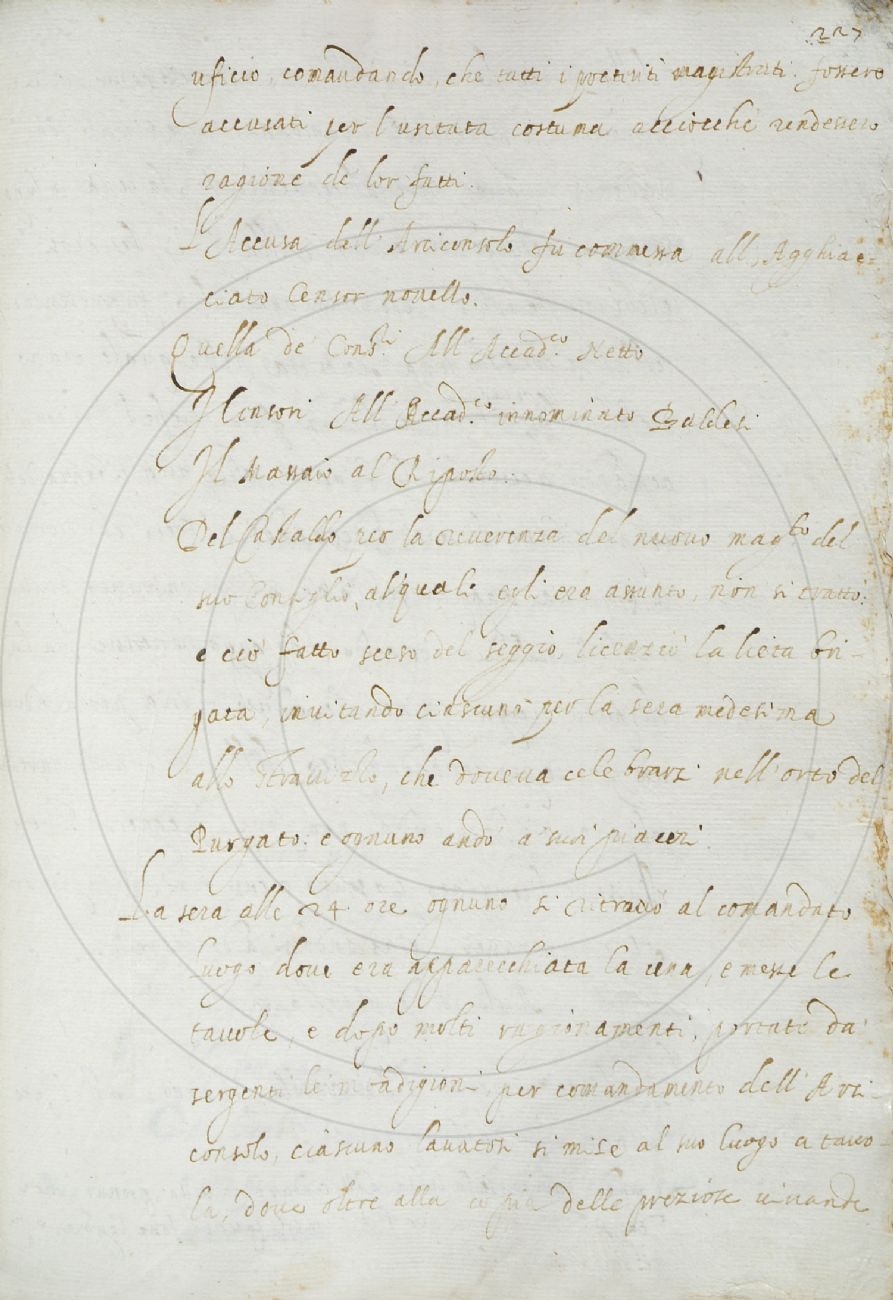 227
uficio, comandando, che tutti i potenti magistrati fossero
accusati per l'usitata costuma acciocche rendessero
ragione de lor fatti.
L'Accusa dell'Arciconsolo fu commessa all'Agghiac=
ciato Censor novello.
Quella de' Cons.ri All'Accad.co Netto
I Censori All'Accad.co innominato Baldesi
Il Massaio al Riposto.
Del Castaldo per la reverenza del nuovo mag.to del
suo Consiglio, al quale egli era assunto, non si trattò:
e ciò fatto sceso del seggio, licenziò la lieta bri-
gata, invitando ciascuno per la sera medesima
allo Stravizzo, che doveva celebrarsi nell'orto del
Purgato: e ognuno andò a suoi piaceri.
La sera alle 24 ore ognuno si ritrovò al comandato
luogo dove era apparecchiata la cena, e messe le
tavole, e dopo molti ragionamenti, portate da
sergenti le imbandigioni per comandamento dell'Arci-
consolo, ciascuno lavatosi si mise al suo luogo a tavo-
la, dove oltre alla copia delle preziose vivande